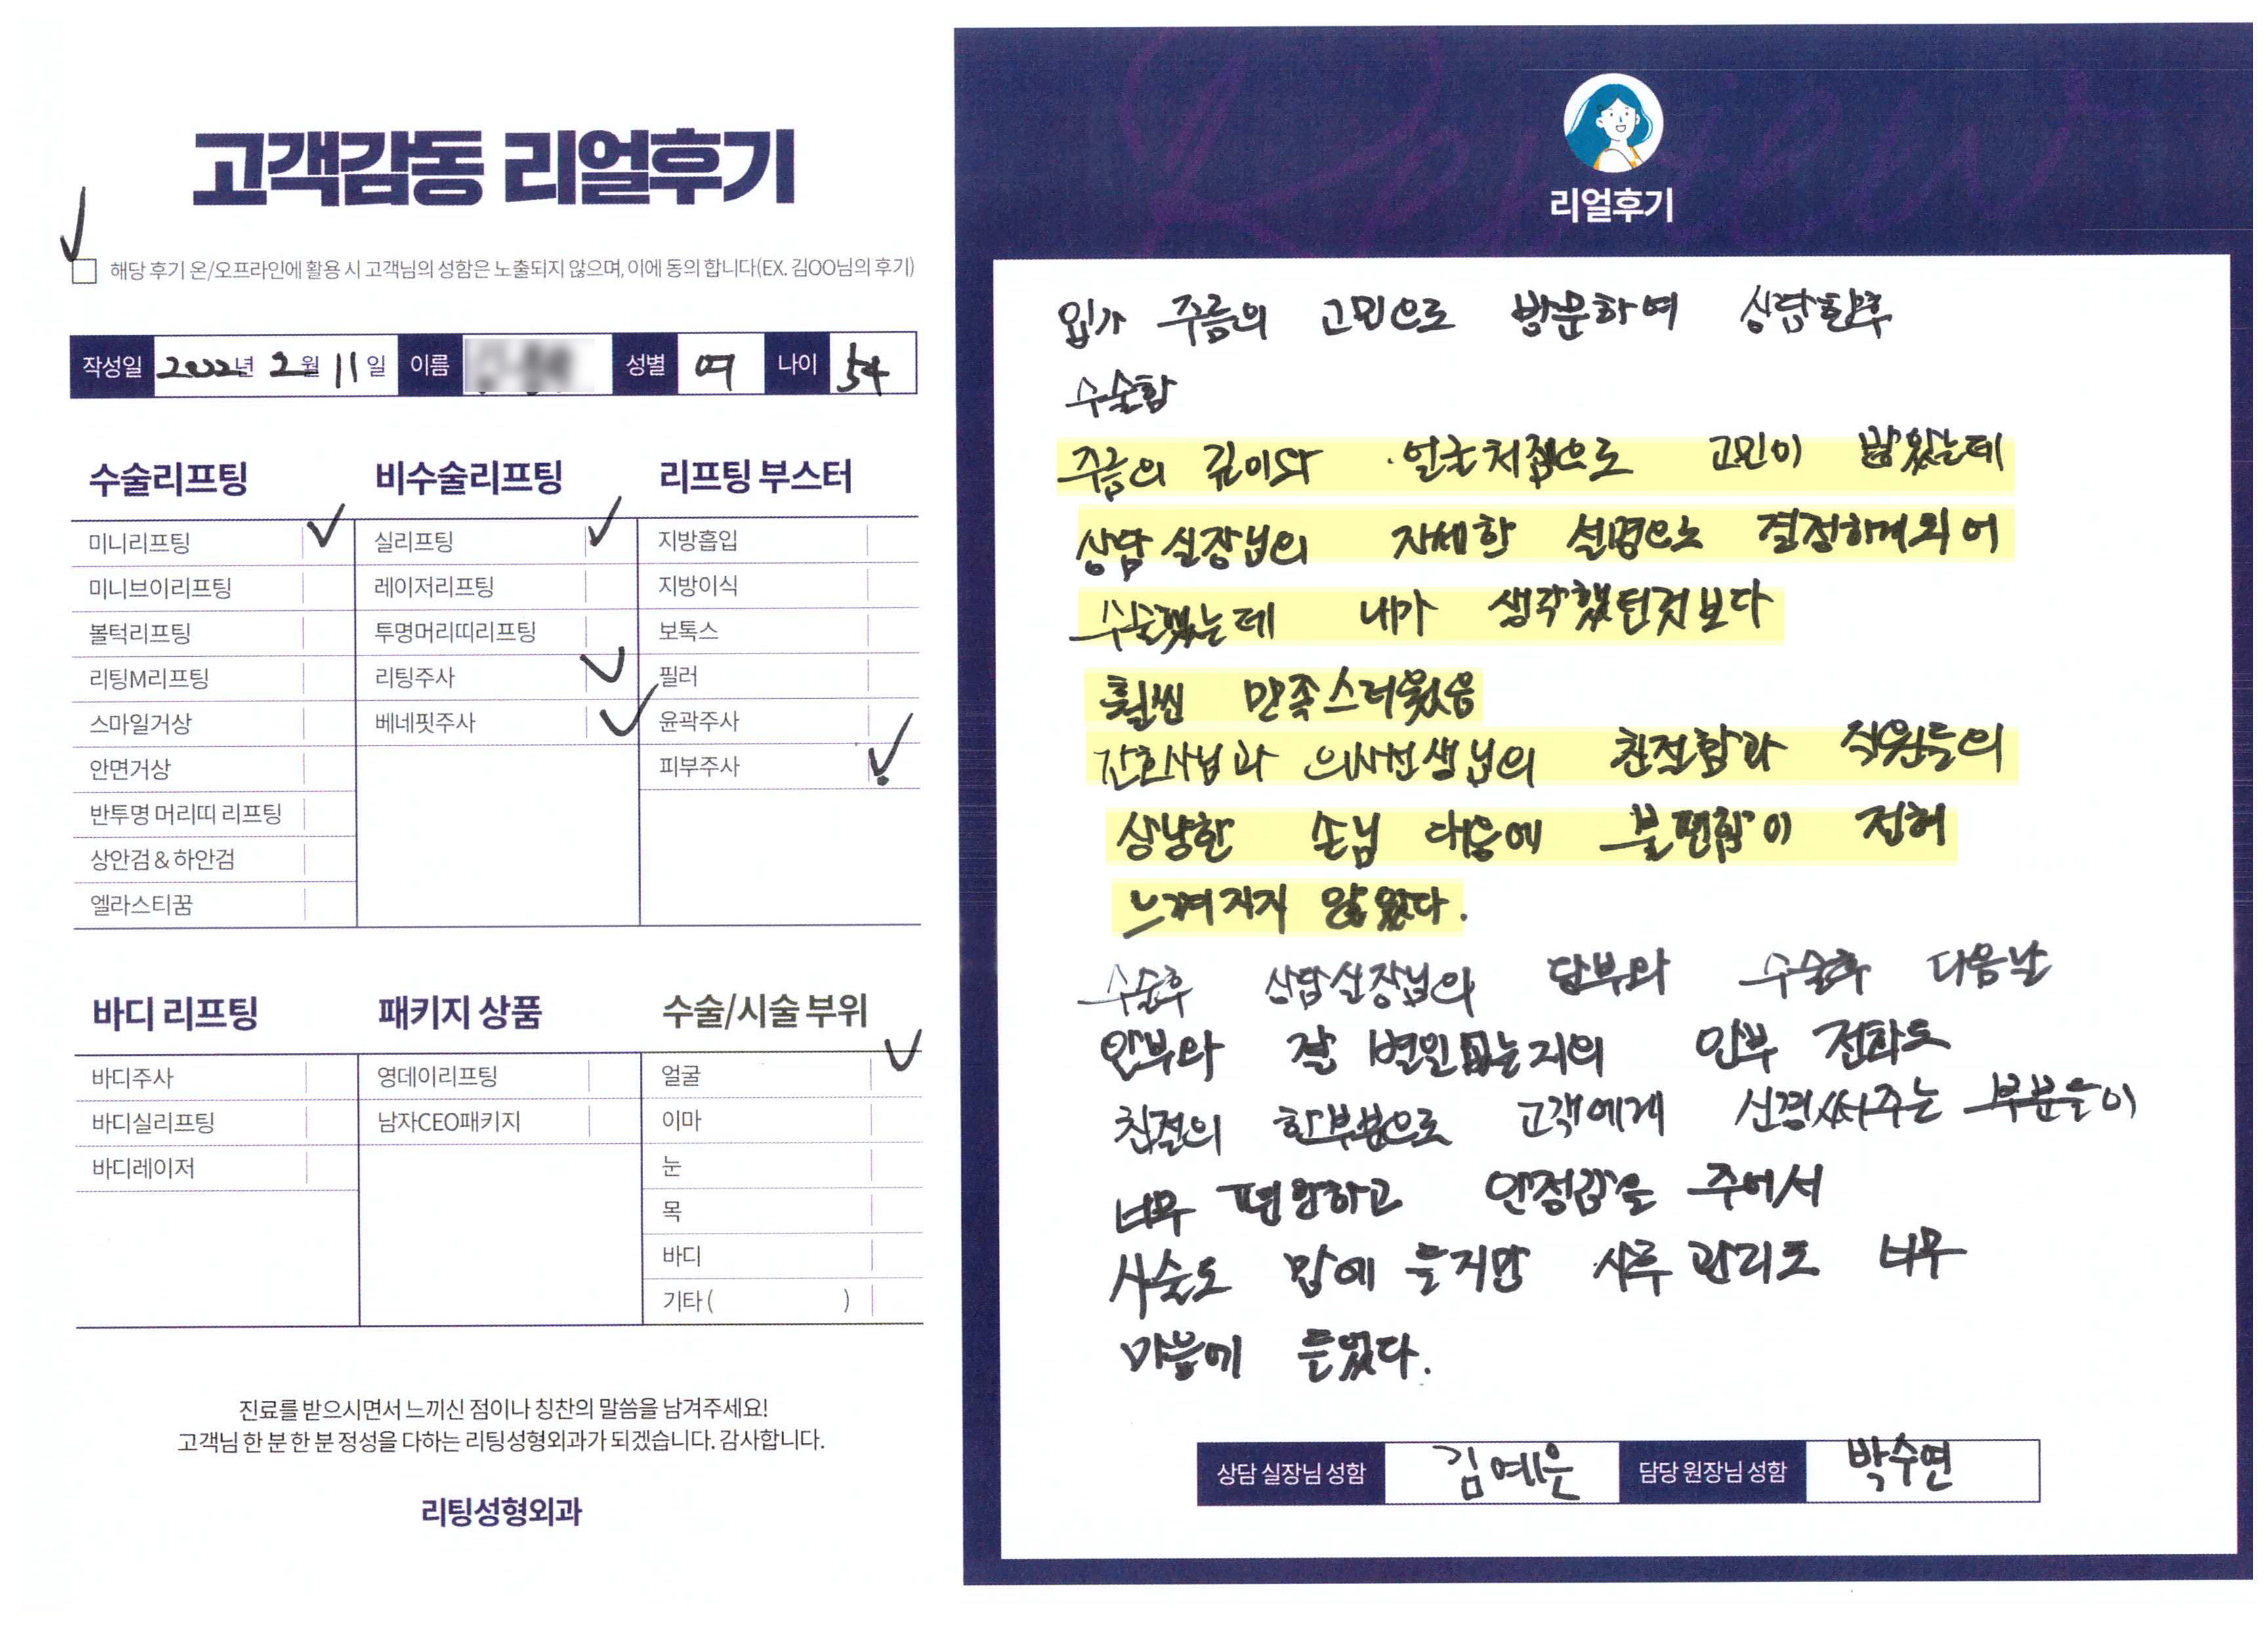 고객감동 리얼후기
해당 후기 온/오프라인에 활용 시 고객님의 성함은 노출되지 않으며, 이에 동의 합니다(EX. 김OO님의 후기)
작성일 2022년 2월 11일 이름 성별 여 나이 54
수술리프팅
미니리프팅
미니브이리프팅
볼턱리프팅
리팅M리프팅
스마일거상
안면거상
반투명 머리띠 리프팅
상안검 & 하안검
엘라스티꿈
비수술리프팅
실리프팅
레이저리프팅
투명머리띠리프팅
리팅주사
베네핏주사
리프팅 부스터
지방흡입
지방이식
보톡스
필러
윤곽주사
피부주사
바디 리프팅
바디주사
바디실리프팅
바디레이저
패키지 상품
영데이리프팅
남자CEO패키지
수술/시술 부위
얼굴
이마
눈
목
바디
기타 ( )
진료를 받으시면서 느끼신 점이나 칭찬의 말씀을 남겨주세요!
고객님 한 분 한 분 정성을 다하는 리팅성형외과가 되겠습니다. 감사합니다.
리팅성형외과
리얼후기
입가 주름의 고민으로 방문하여 상담한후
수술함
주름의 깊이와 얼굴처짐으로 고민이 많았는데
상담 실장님의 자세한 설명으로 결정하게되어
수술했는데 내가 생각했던것보다
훨씬 만족스러웠음
간호사님과 의사선생님의 친절함과 직원들의
상냥한 손님 대응에 불편함이 전혀
느껴지지 않았다.
수술후 상담실장님의 당부와 수술후 다음날
안부와 잘 별일없는지의 안부 전화도
친절의 한부분으로 고객에게 신경써주는 부분들이
너무 편안하고 안정감을 주어서
시술도 맘에 들지만 사후 관리도 너무
마음에 든었다.
상담 실장님 성함 김예은 담당 원장님 성함 박수연